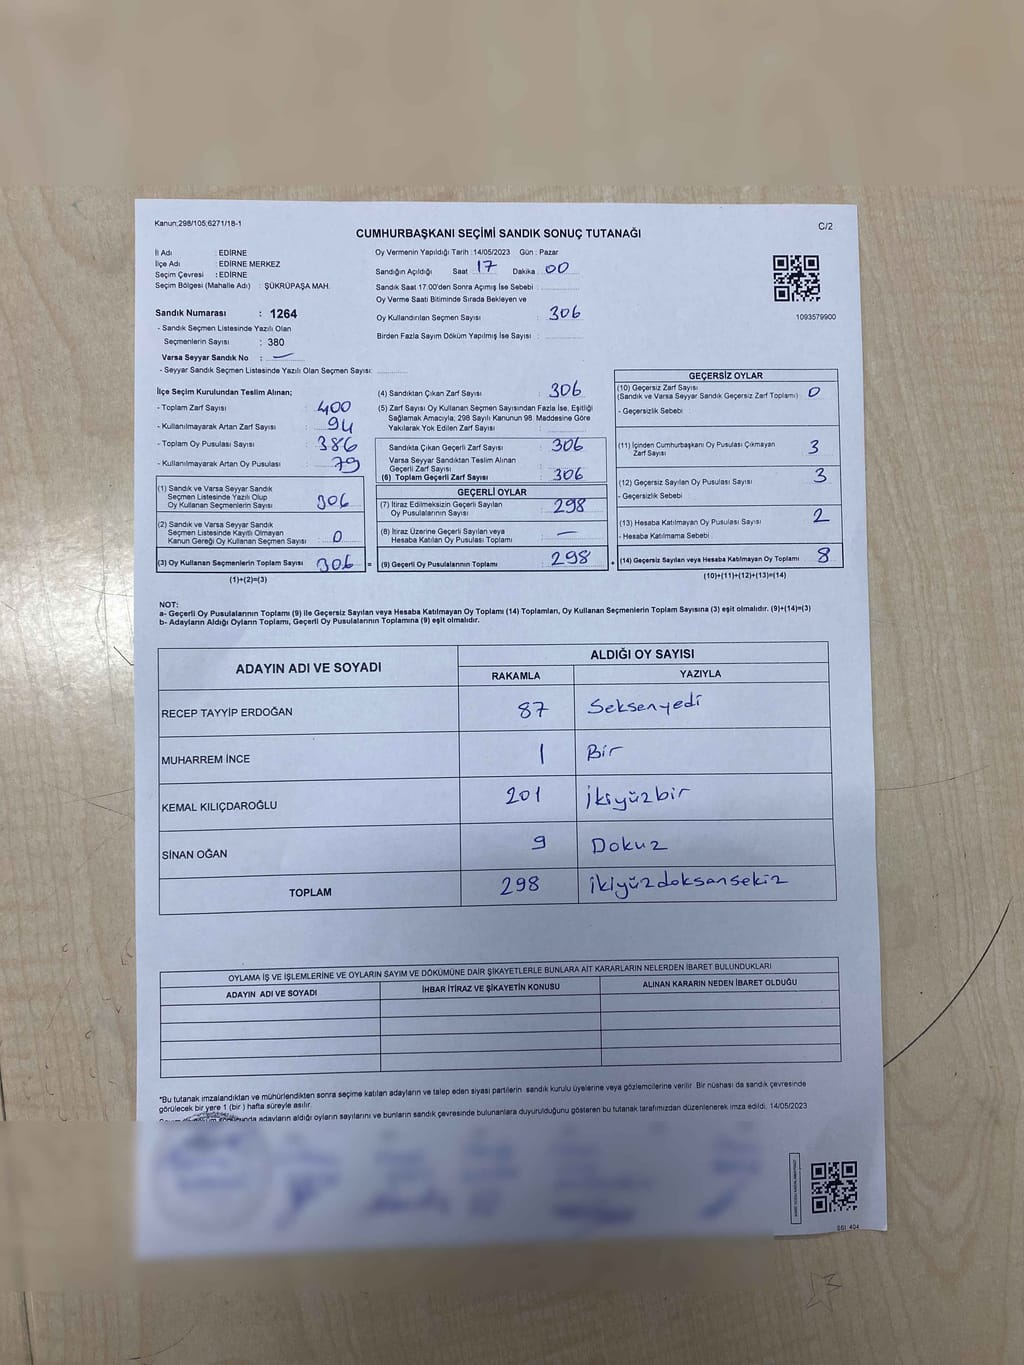 Kanun:298/105;6271/18-1
CUMHURBAŞKANI SEÇİMİ SANDIK SONUÇ TUTANAĞI
C/2
İl Adı : EDİRNE
İlçe Adı : EDİRNE MERKEZ
Seçim Çevresi : EDİRNE
Seçim Bölgesi (Mahalle Adı) : ŞÜKRÜPAŞA MAH.
Sandık Numarası : 1264
- Sandık Seçmen Listesinde Yazılı Olan
Seçmenlerin Sayısı : 380
Varsa Seyyar Sandık No : —
- Seyyar Sandık Seçmen Listesinde Yazılı Olan Seçmen Sayısı:
Oy Vermenin Yapıldığı Tarih :14/05/2023 Gün : Pazar
Sandığın Açıldığı Saat 17 Dakika 00
Sandık Saat 17:00'den Sonra Açımış İse Sebebi :
Oy Verme Saati Bitiminde Sırada Bekleyen ve
Oy Kullandırılan Seçmen Sayısı : 306
Birden Fazla Sayım Döküm Yapılmış İse Sayısı :
1093579900
İlçe Seçim Kurulundan Teslim Alınan;
- Toplam Zarf Sayısı : 400
- Kullanılmayarak Artan Zarf Sayısı : 94
- Toplam Oy Pusulası Sayısı : 386
- Kullanılmayarak Artan Oy Pusulası : 79
(1) Sandık ve Varsa Seyyar Sandık
Seçmen Listesinde Yazılı Olup
Oy Kullanan Seçmenlerin Sayısı : 306
(2) Sandık ve Varsa Seyyar Sandık
Seçmen Listesinde Kayıtlı Olmayan
Kanun Gereği Oy Kullanan Seçmen Sayısı : 0
(3) Oy Kullanan Seçmenlerin Toplam Sayısı : 306 =
(1)+(2)=(3)
(4) Sandıktan Çıkan Zarf Sayısı : 306
(5) Zarf Sayısı Oy Kullanan Seçmen Sayısından Fazla İse, Eşitliği
Sağlamak Amacıyla; 298 Sayılı Kanunun 98. Maddesine Göre
Yakılarak Yok Edilen Zarf Sayısı :
Sandıkta Çıkan Geçerli Zarf Sayısı : 306
Varsa Seyyar Sandıktan Teslim Alınan
Geçerli Zarf Sayısı
(6) Toplam Geçerli Zarf Sayısı : 306
GEÇERLİ OYLAR
(7) İtiraz Edilmeksizin Geçerli Sayılan
Oy Pusulalarının Sayısı : 298
(8) İtiraz Üzerine Geçerli Sayılan veya
Hesaba Katılan Oy Pusulası Toplamı : —
(9) Geçerli Oy Pusulalarının Toplamı : 298 +
GEÇERSİZ OYLAR
(10) Geçersiz Zarf Sayısı
(Sandık ve Varsa Seyyar Sandık Geçersiz Zarf Toplamı) : 0
- Geçersizlik Sebebi :
(11) İçinden Cumhurbaşkanı Oy Pusulası Çıkmayan
Zarf Sayısı : 3
(12) Geçersiz Sayılan Oy Pusulası Sayısı : 3
- Geçersizlik Sebebi
(13) Hesaba Katılmayan Oy Pusulası Sayısı : 2
- Hesaba Katılmama Sebebi
(14) Geçersiz Sayılan veya Hesaba Katılmayan Oy Toplamı : 8
(10)+(11)+(12)+(13)=(14)
NOT:
a- Geçerli Oy Pusulalarının Toplamı (9) ile Geçersiz Sayılan veya Hesaba Katılmayan Oy Toplamı (14) Toplamları, Oy Kullanan Seçmenlerin Toplam Sayısına (3) eşit olmalıdır. (9)+(14)=(3)
b- Adayların Aldığı Oyların Toplamı, Geçerli Oy Pusulalarının Toplamına (9) eşit olmalıdır.
ADAYIN ADI VE SOYADI
ALDIĞI OY SAYISI
RAKAMLA YAZIYLA
RECEP TAYYİP ERDOĞAN 87 Seksenyedi
MUHARREM İNCE 1 Bir
KEMAL KILIÇDAROĞLU 201 İkiyüzbir
SİNAN OĞAN 9 Dokuz
TOPLAM 298 ikiyüzdoksansekiz
OYLAMA İŞ VE İŞLEMLERİNE VE OYLARIN SAYIM VE DÖKÜMÜNE DAİR ŞİKAYETLERLE BUNLARA AİT KARARLARIN NELERDEN İBARET BULUNDUKLARI
ADAYIN ADI VE SOYADI İHBAR İTİRAZ VE ŞİKAYETİN KONUSU ALINAN KARARIN NEDEN İBARET OLDUĞU
*Bu tutanak imzalandıktan ve mühürlendikten sonra seçime katılan adayların ve talep eden siyasi partilerin sandık kurulu üyelerine veya gözlemcilerine verilir. Bir nüshası da sandık çevresinde
görülecek bir yere 1 (bir ) hafta süreyle asılır.
adayların aldığı oyların sayılarını ve bunların sandık çevresinde bulunanlara duyurulduğunu gösteren bu tutanak tarafımızdan düzenlenerek imza edildi. 14/05/2023